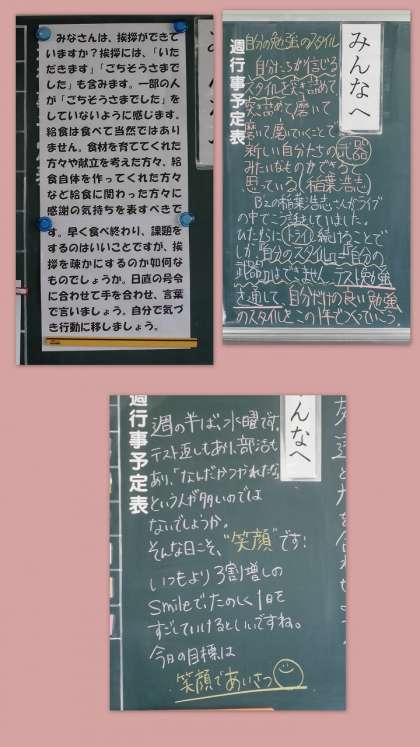 みなさんは、挨拶ができて
いますか？挨拶には、「いた
だきます」「ごちそうさまで
した」も含みます。一部の人
が「ごちそうさまでした」を
していないように感じます。
給食は食べて当然ではあり
ません。食材を育ててくれた
方々や献立を考えた方々、給
食自体を作ってくれた方々
など給食に関わった方々に
感謝の気持ちを表すべきで
す。早く食べ終わり、課題を
するのはいいことですが、挨
拶を疎かにするのか如何な
ものでしょうか。日直の号令
に合わせて手を合わせ、言葉
で言いましょう。自分で気づ
き行動に移しましょう。
みんなへ
週行事予定表
自分の勉強のスタイル
自分たちが信じる
スタイルを突き詰めて
突き詰めて磨いて
磨いて磨いていくことで
新しい自分たちの武器
みたいなものができると
思っている（稲葉浩志）
B'zの稲葉浩志さんがライブ
の中でこう話していました。
ひたむきにトライし続けることで
しか「自分のスタイル」＝「自分の
武器」はできません。テスト勉強
を通して、自分だけの良い勉強
のスタイルをこの1年でつくっていこう。
んなへ
週行事予定表
週の半ば、水曜です。
テスト返しもあり、部活も
あり、「なんだかつかれたな」
という人が多いのでは
ないでしょうか。
そんな日こそ、“笑顔”です！
いつもより3割増しの
Smileで、たのしく1日を
すごしていけるといいですね。
今日の目標は
笑顔であいさつ